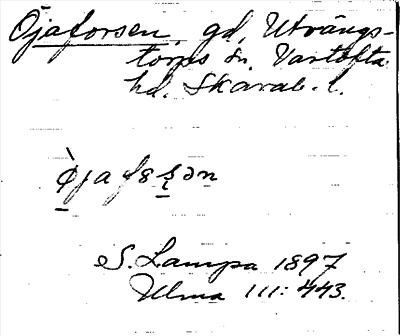 Öjaforsen, gd, Utvängs-
torps sn. Vartofta
hd. Skarab. l.
S. Lampa 1897
Ulma 111: 443.